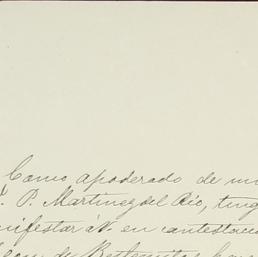 Como apoderado de mi
P. Martinez del Rio, teng
nifestar á V. en contestacio